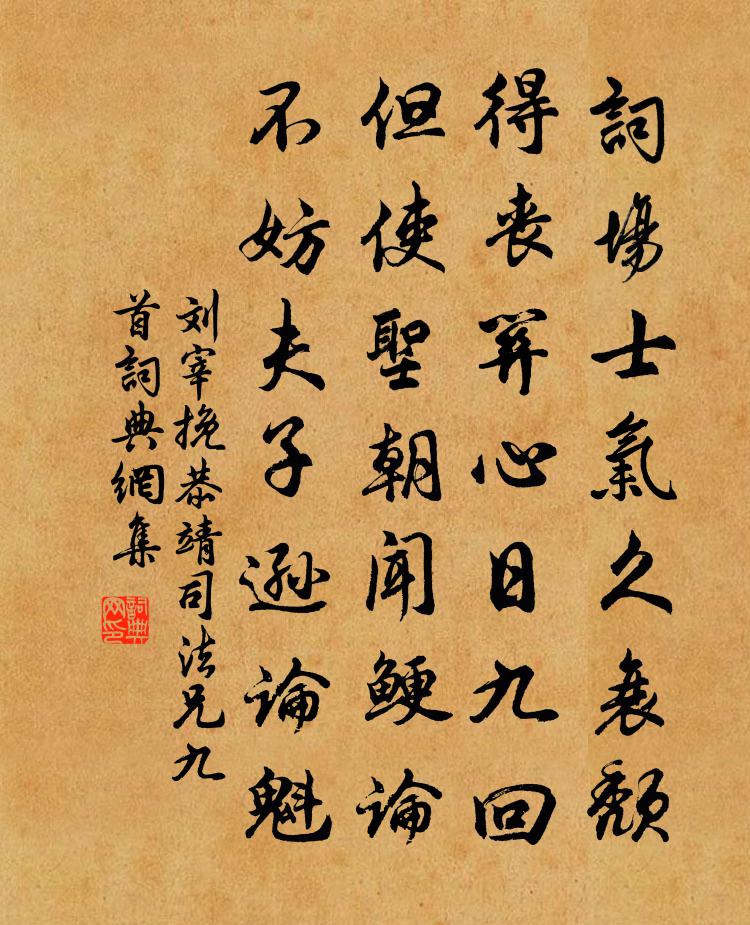 詞場士氣久衰頹
得喪關心日九回
但使聖朝聞鯁論
不妨夫子遜論魁
刘宰挽恭靖司法兄九
首詞典網集
詞典
网印